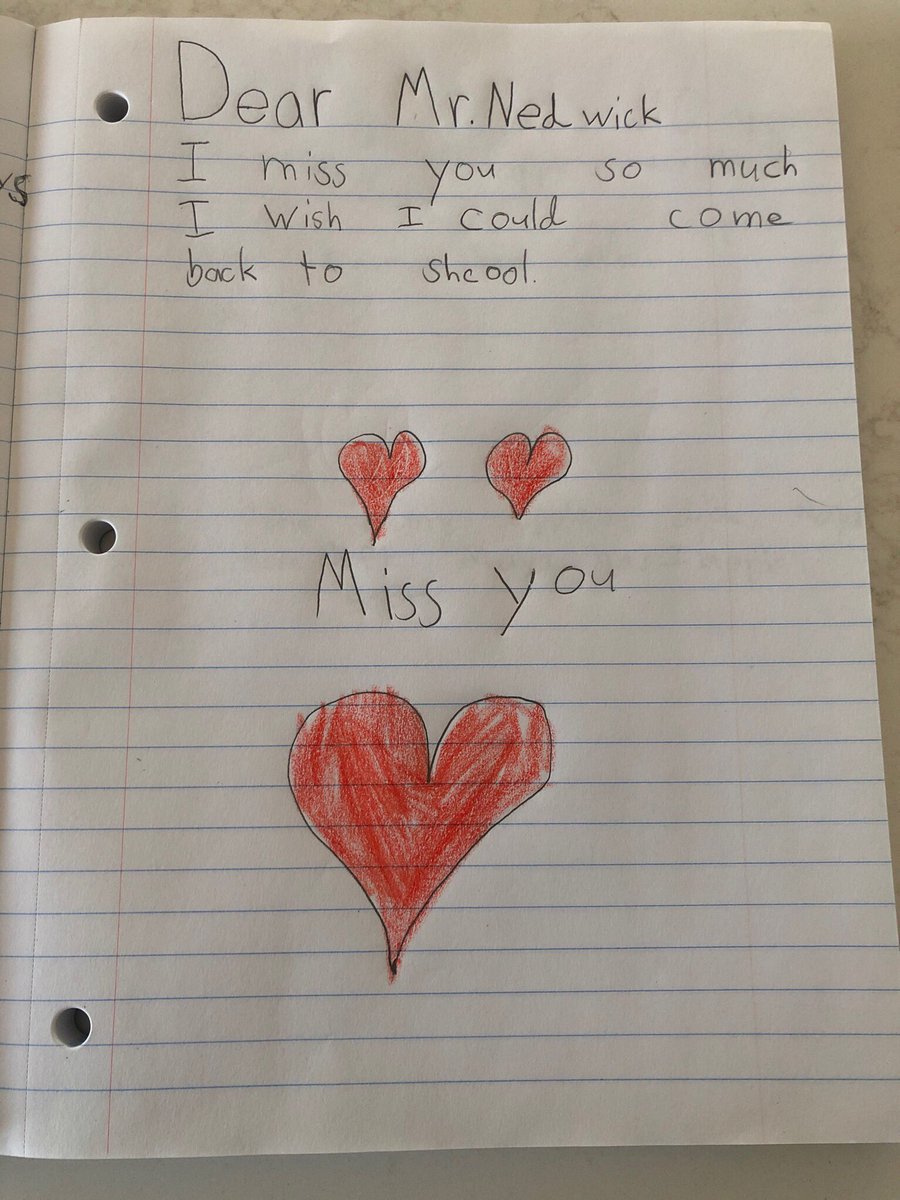 Dear Mr. Nedwick
I miss you so much
I wish I could come
back to shcool.
Miss you